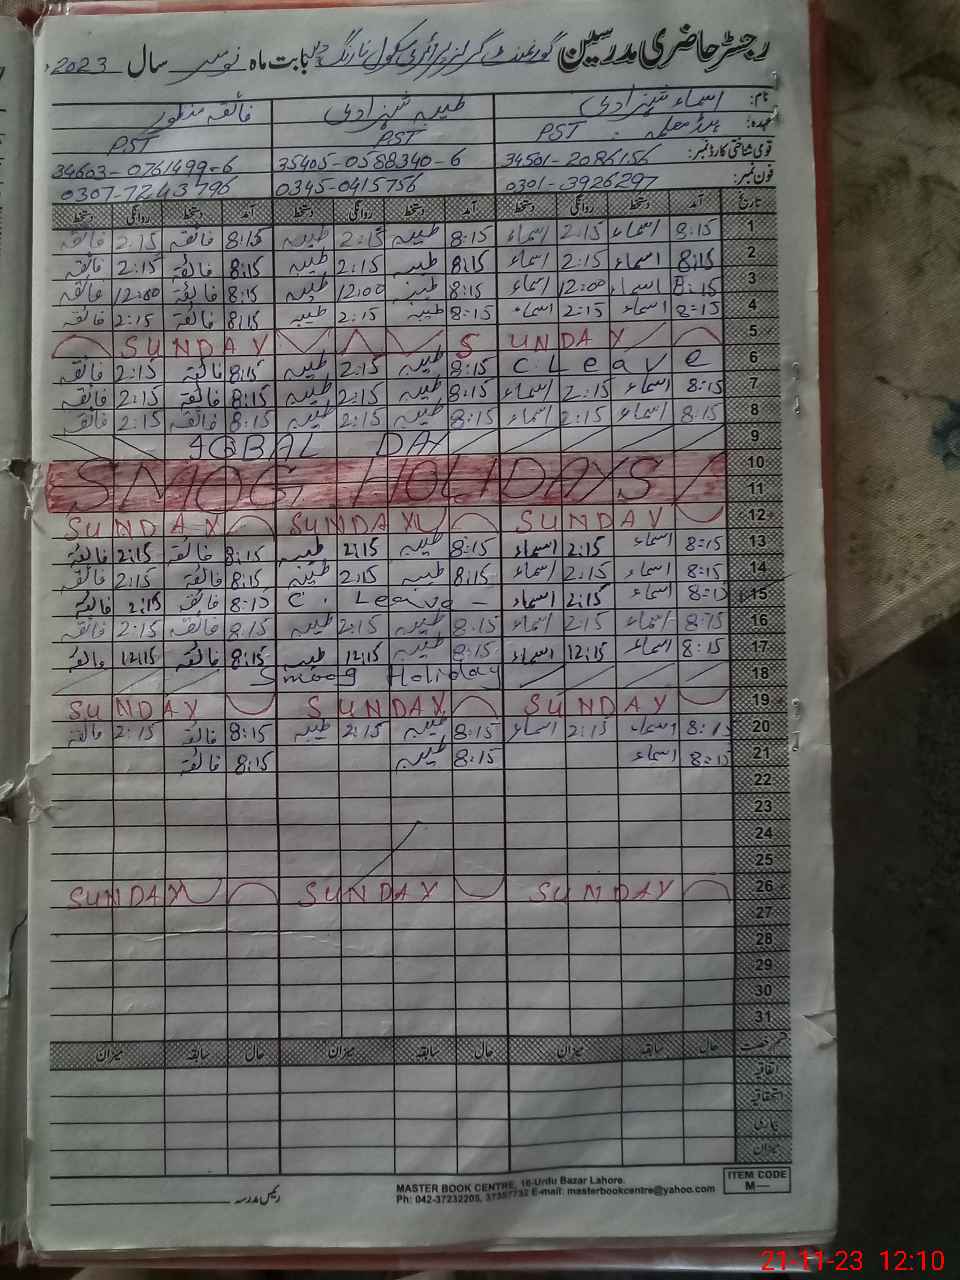 رجسٹر حاضری مدرسین گورنمنٹ گرلز پرائمری سکول نارنگ بابت ماہ نومبر سال 2023ء
نام: اسماء شہزادی طیبہ شہزادی فائقہ منظور
عہدہ: ہیڈ معلمہ PST PST PST
قومی شناختی کارڈ نمبر: 34501-2086156 35405-0588340-6 34603-0761499-6
فون نمبر: 0301-3926297 0345-0415756 0307-7243796
تاریخ آمد دستخط روانگی دستخط آمد دستخط روانگی دستخط آمد دستخط روانگی دستخط
1 8:15 اسماء 2:15 اسماء 8:15 طیبہ 2:15 طیبہ 8:15 فائقہ 2:15 فائقہ
2 8:15 اسماء 2:15 اسماء 8:15 طیبہ 2:15 طیبہ 8:15 فائقہ 2:15 فائقہ
3 8:15 اسماء 12:00 اسماء 8:15 طیبہ 12:00 طیبہ 8:15 فائقہ 12:00 فائقہ
4 8:15 اسماء 2:15 اسماء 8:15 طیبہ 2:15 طیبہ 8:15 فائقہ 2:15 فائقہ
5 SUNDAY SUNDAY
6 C Leave 8:15 طیبہ 2:15 طیبہ 8:15 فائقہ 2:15 فائقہ
7 8:15 اسماء 2:15 اسماء 8:15 طیبہ 2:15 طیبہ 8:15 فائقہ 2:15 فائقہ
8 8:15 اسماء 2:15 اسماء 8:15 طیبہ 2:15 طیبہ 8:15 فائقہ 2:15 فائقہ
9 IQBAL DAY
10
SMOG HOLIDAYS
11
12 SUNDAY SUNDAY SUNDAY
13 8:15 اسماء 2:15 اسماء 8:15 طیبہ 2:15 طیبہ 8:15 فائقہ 2:15 فائقہ
14 8:15 اسماء 2:15 اسماء 8:15 طیبہ 2:15 طیبہ 8:15 فائقہ 2:15 فائقہ
15 8:15 اسماء 2:15 اسماء C. Leave - 8:15 فائقہ 2:15 فائقہ
16 8:15 اسماء 2:15 اسماء 8:15 طیبہ 2:15 طیبہ 8:15 فائقہ 2:15 فائقہ
17 8:15 اسماء 12:15 اسماء 8:15 طیبہ 12:15 طیبہ 8:15 فائقہ 12:15 فائقہ
18 Smoog Holiday
19 SUNDAY SUNDAY SUNDAY
20 8:15 اسماء 2:15 اسماء 8:15 طیبہ 2:15 طیبہ 8:15 فائقہ 2:15 فائقہ
21 8:15 اسماء 8:15 طیبہ 8:15 فائقہ
22
23
24
25
26 SUNDAY SUNDAY SUNDAY
27
28
29
30
31
قسم رخصت حال سابقہ میزان حال سابقہ میزان حال سابقہ میزان
اتفاقیہ
استحقاقیہ
بیماری
میزان
رئیس مدرسہ
MASTER BOOK CENTRE, 16-Urdu Bazar Lahore.
Ph: 042-37232205, 37357732 E-mail: masterbookcentre@yahoo.com
ITEM CODE
M—
21-11-23 12:10